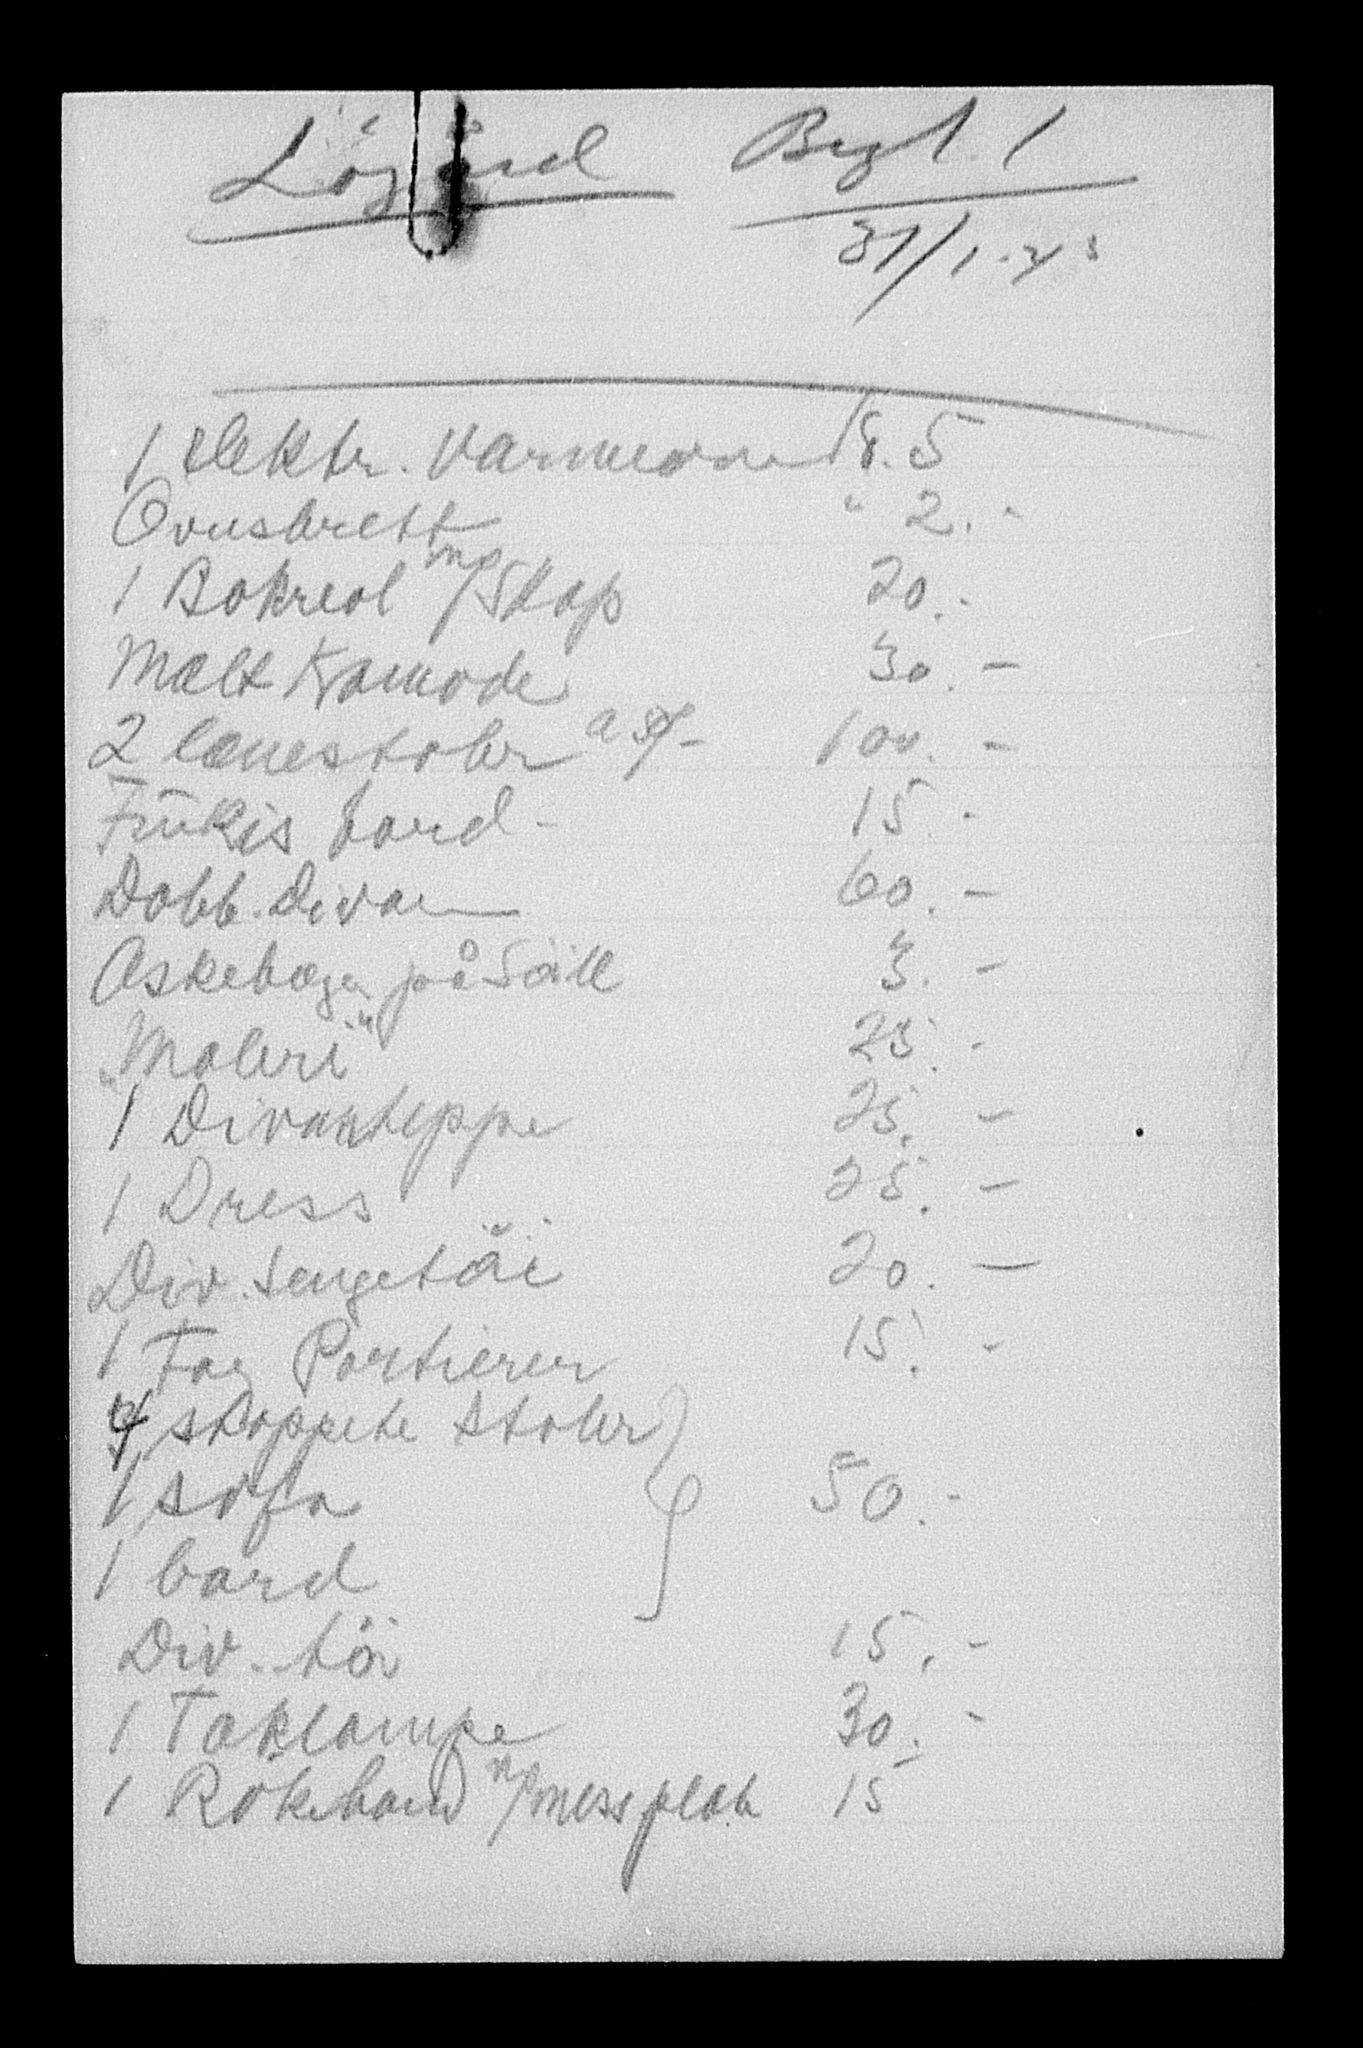 Bzgl. 1
31/1-43
1 elektr. varmeovn kr. 5
Ovnsbrett " 2.-
1 Bokreol m/Skap 20.-
Malt Komode 30.-
2 lænestoler a 50/- 100.-
Funkis bord - 15.-
Dobb. divan 60.-
Askebæger på Söille 3.-
"Maleri" 25.-
1 Divanteppe 25.-
1 Dress 25.-
Div. sengetöi 20.-
1 Fag Portierer 15.-
4 stoppete stoler
1 sofa 50.-
1 bord
Div. töi 15.-
1 Taklampe 30.-
1 Rökebord m/mess plate 15